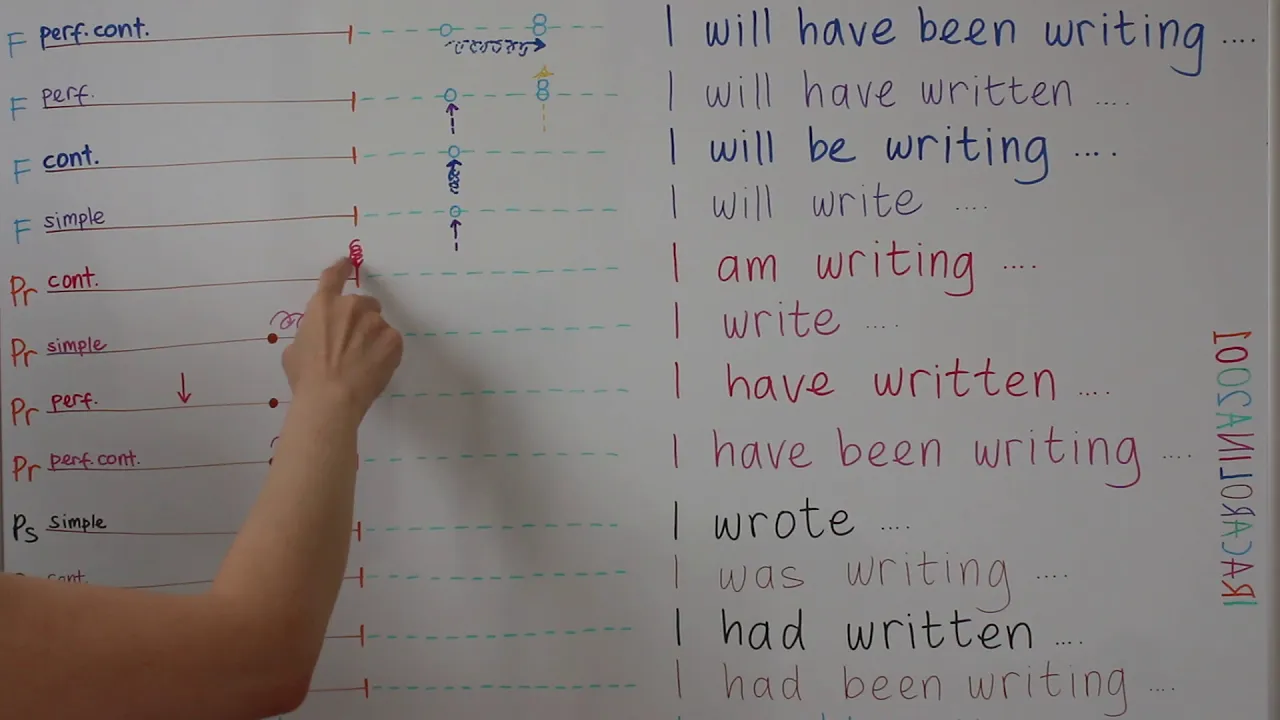 F perf. cont. I will have been writing ....
F perf. I will have written ....
F cont. I will be writing ....
F simple I will write ....
Pr cont. I am writing ....
Pr simple I write ....
Pr perf. I have written ....
Pr perf. cont. I have been writing ....
Ps simple I wrote ....
cont. I was writing ....
I had written ....
I had been writing ....